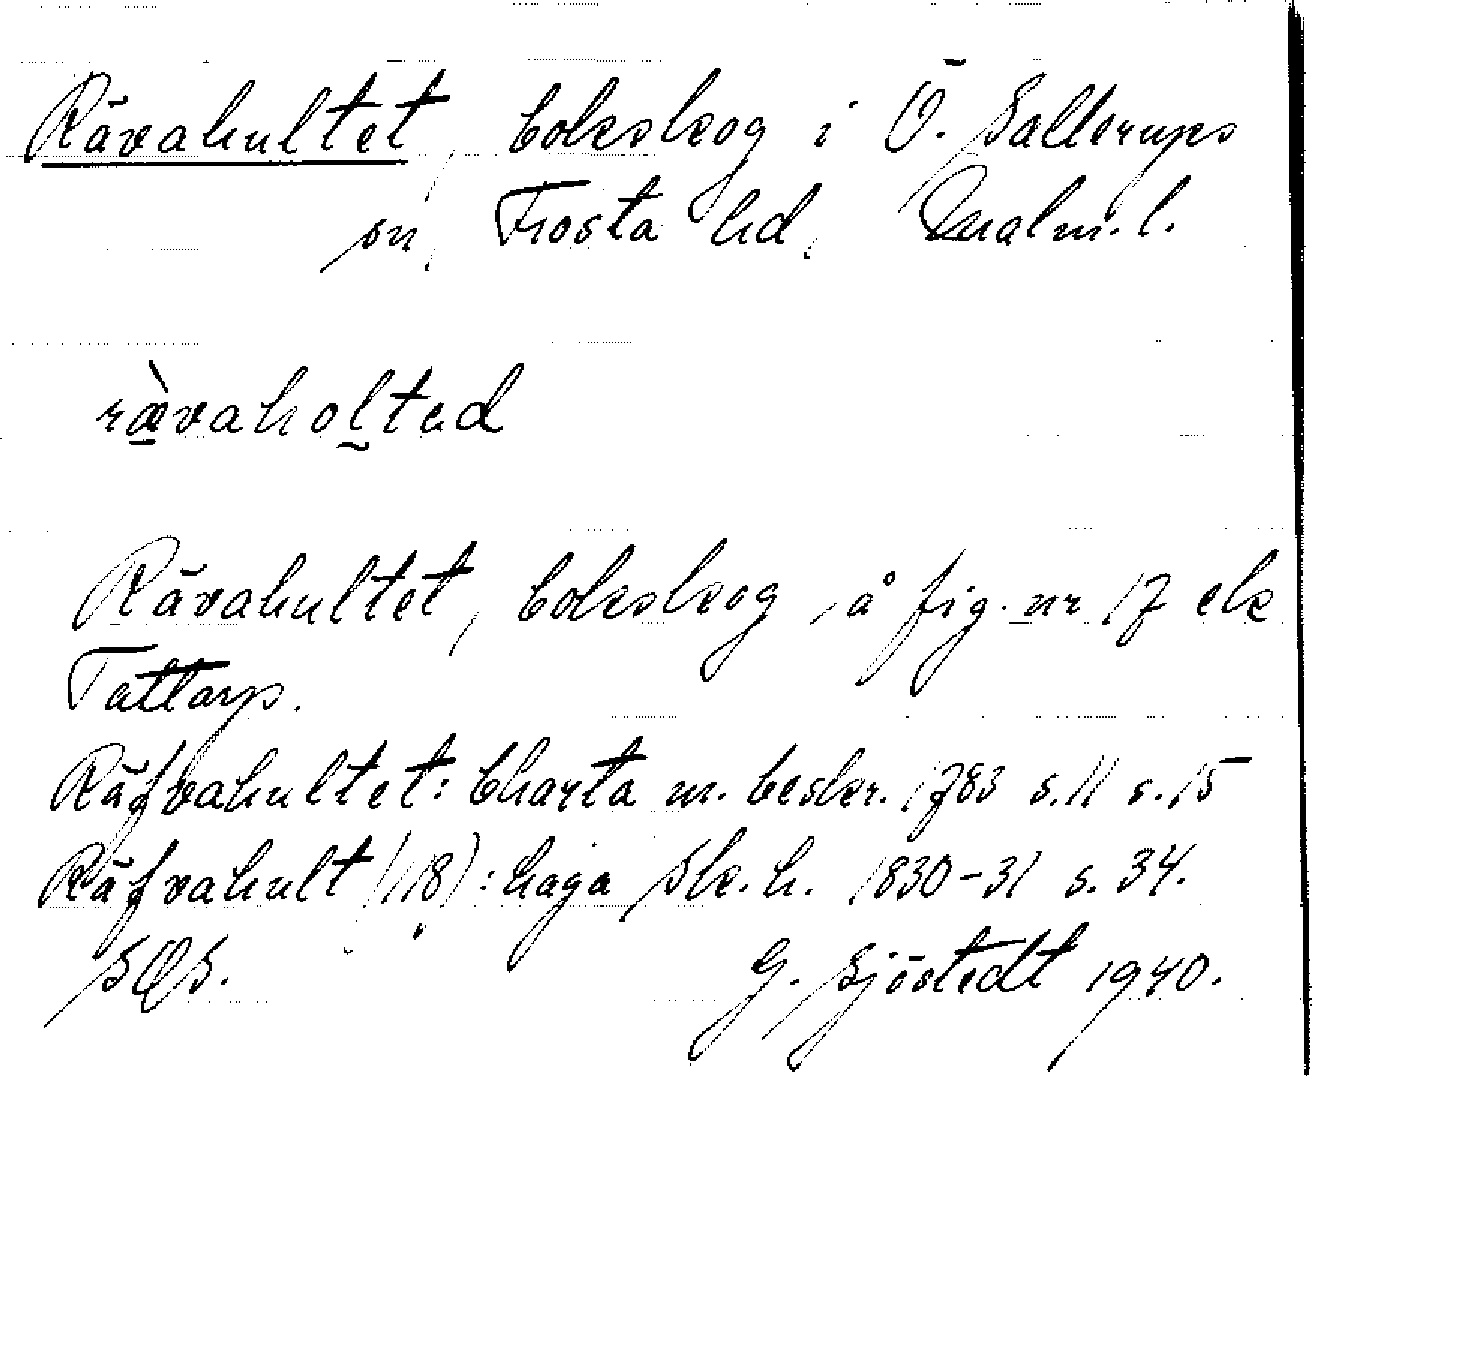 Rävahultet, bokskog i Ö. Sallerups
sn, Frosta hd, Malm. l.
rævaholted
Rävahultet, bokskog, å fig. nr 17 ek
Tattarp.
Räfvahultet: Charta m. beskr. 1783 s. 11 s. 15
Räfvahult (118): haga Sk. h. 1830-31 s. 34.
G. Sjöstedt 1940.